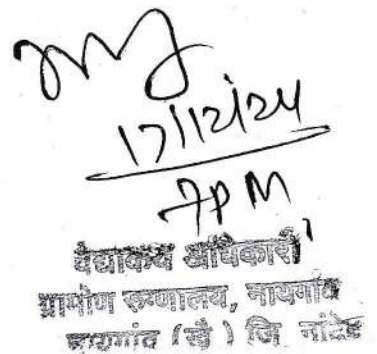 17/12/24
7PM
वैद्यकिय अधिकारी
ग्रामीण रुग्णालय, नायगांव
नायगांव (खै) जि नांदेड